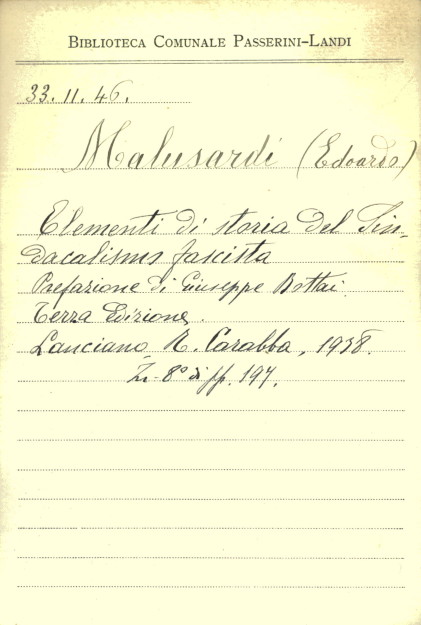 BIBLIOTECA COMUNALE PASSERINI-LANDI
33.11.46.
Malusardi (Edoardo)
Elementi di storia del Sin-
dacalismo fascista
Prefazione di Giuseppe Bottai.
Terza Edizione.
Lanciano, R. Carabba, 1938.
In-8° di pp. 197.